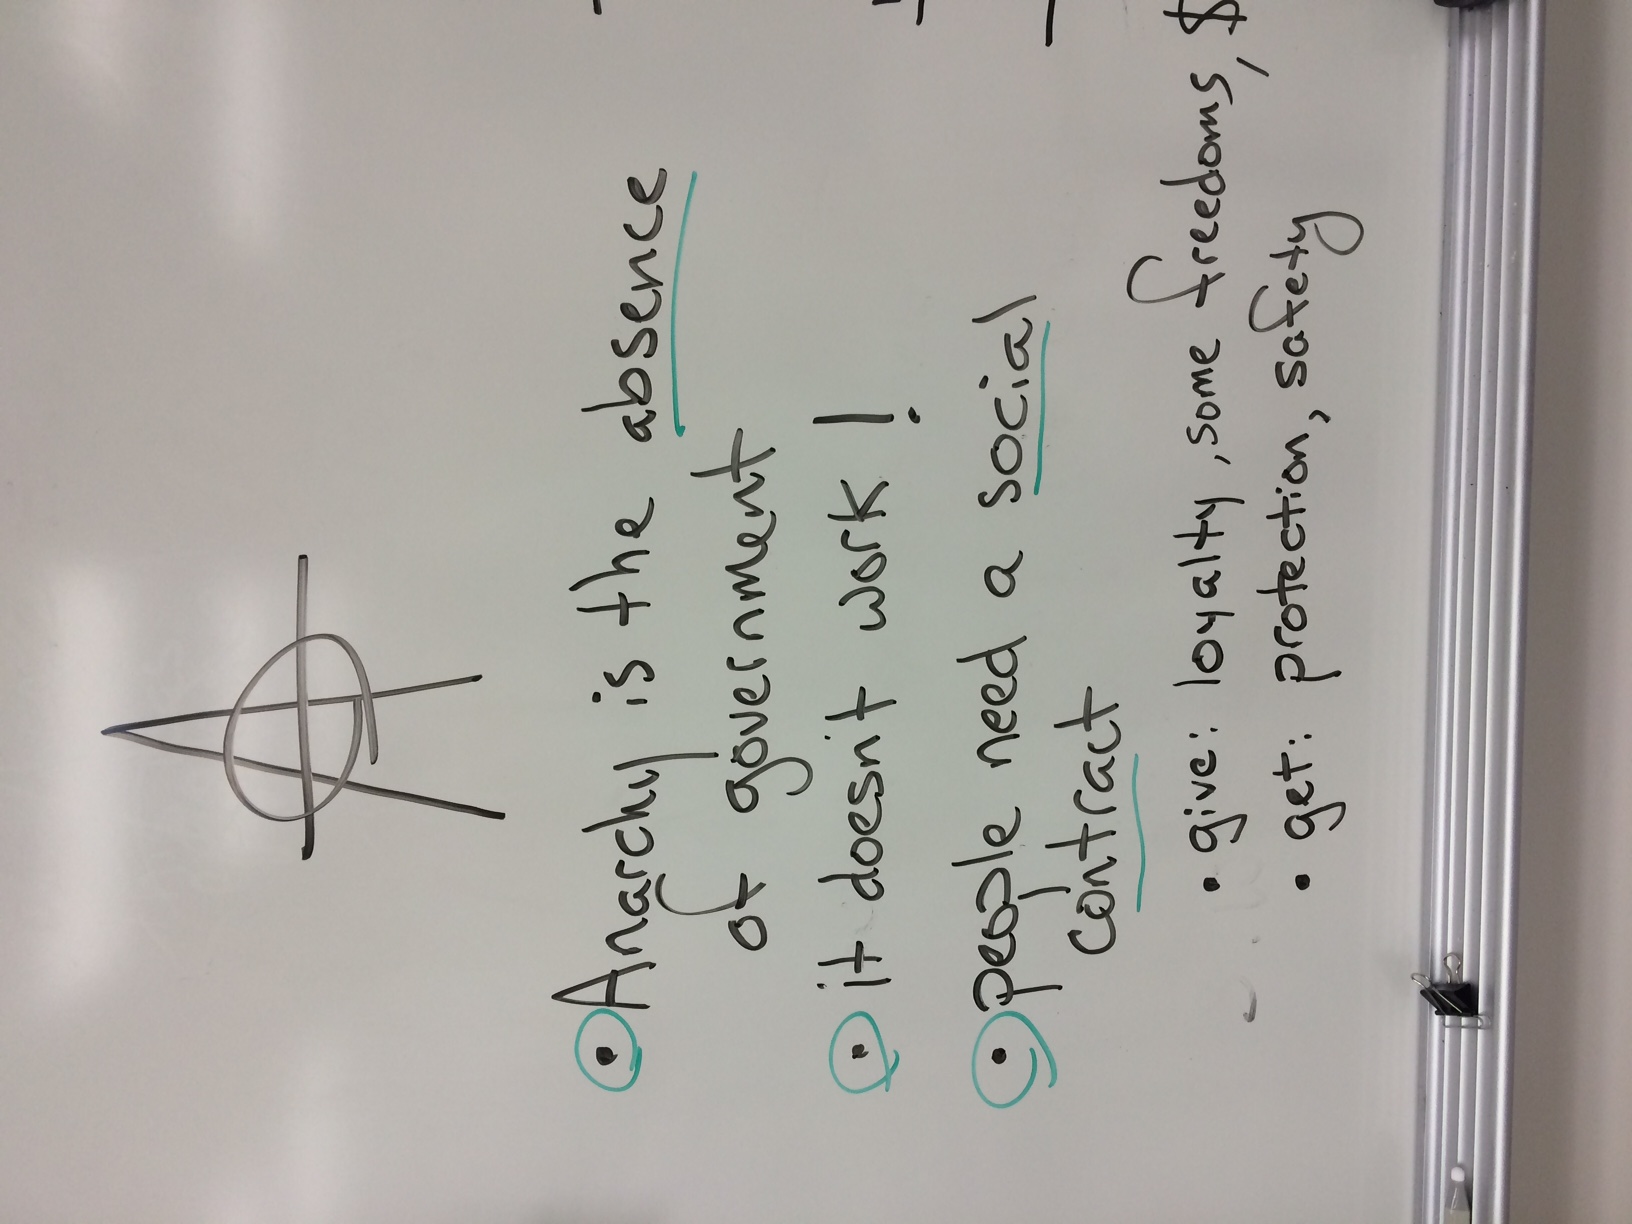 • Anarchy is the absence
of government
• it doesn't work!
• people need a social
contract
• give: loyalty, some freedoms, $
• get: protection, safety